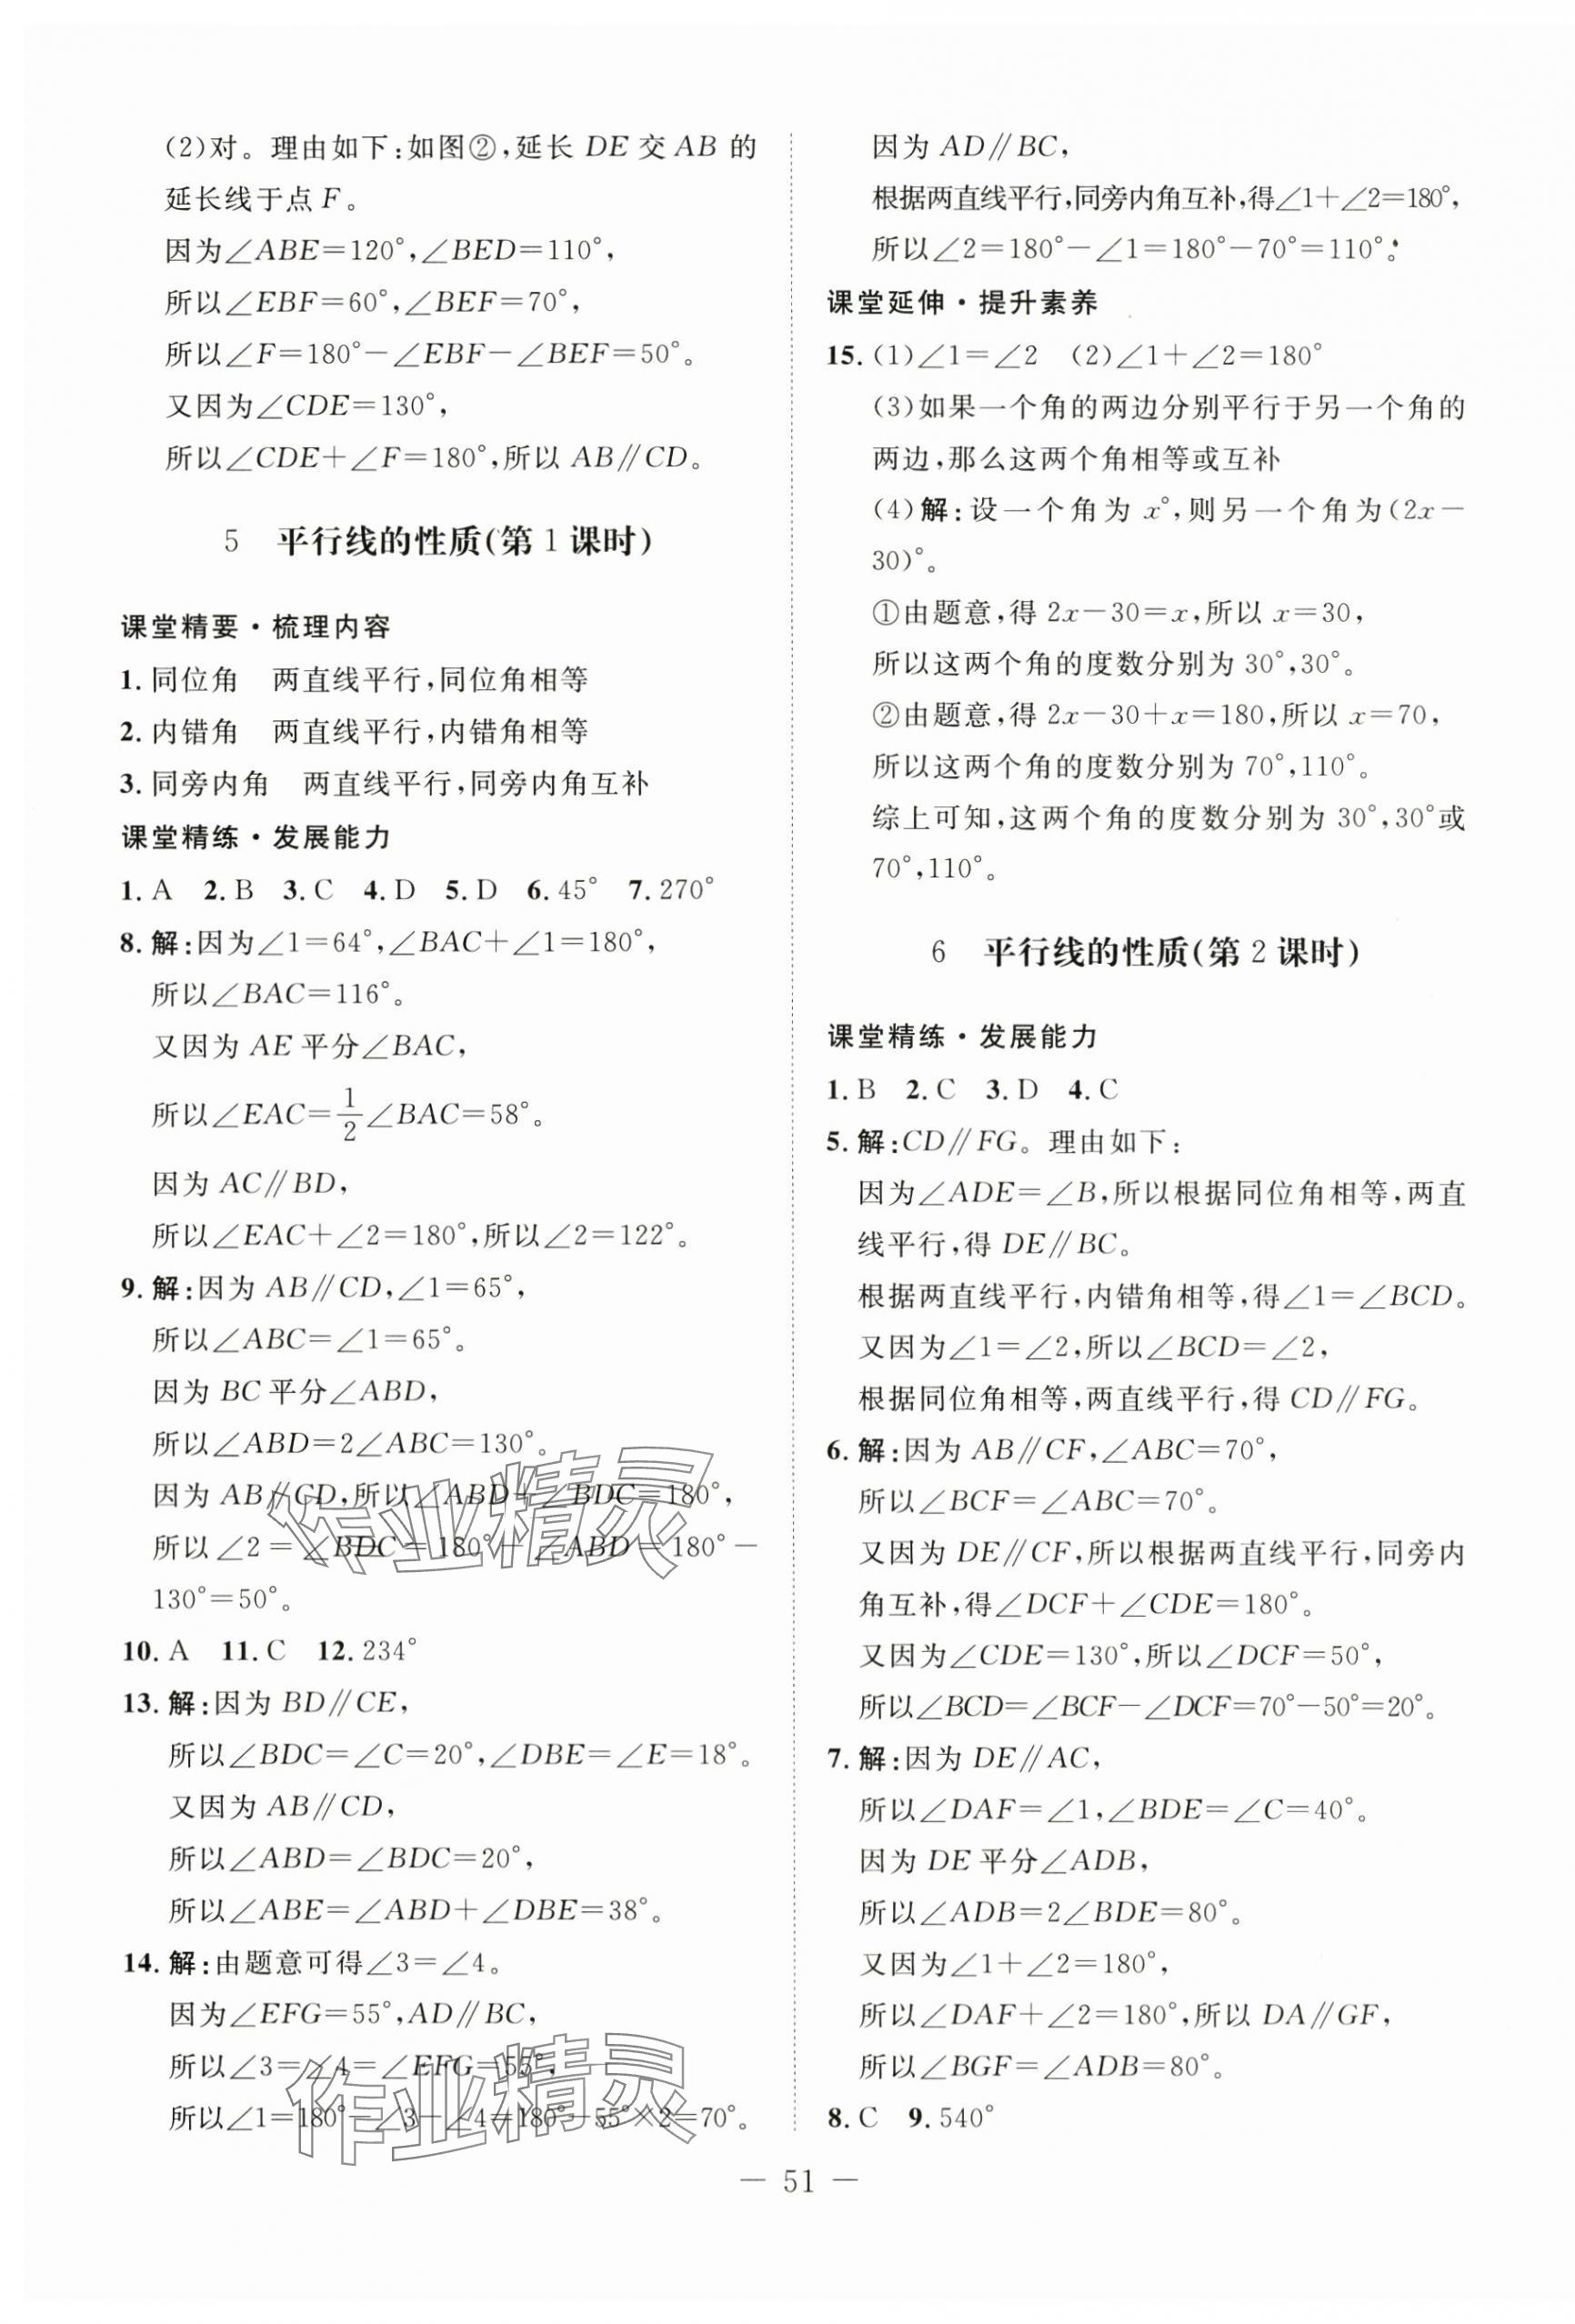 (2)对。理由如下:如图②,延长 DE 交 AB 的
延长线于点 F。
因为∠ABE=120°,∠BED=110°,
所以∠EBF=60°,∠BEF=70°,
所以∠F=180°-∠EBF-∠BEF=50°。
又因为∠CDE=130°,
所以∠CDE+∠F=180°,所以 AB∥CD。
5 平行线的性质(第1课时)
课堂精要·梳理内容
1. 同位角 两直线平行,同位角相等
2. 内错角 两直线平行,内错角相等
3. 同旁内角 两直线平行,同旁内角互补
课堂精练·发展能力
1. A 2. B 3. C 4. D 5. D 6. 45° 7. 270°
8. 解:因为∠1=64°,∠BAC+∠1=180°,
所以∠BAC=116°。
又因为 AE 平分∠BAC,
所以∠EAC=1/2∠BAC=58°。
因为 AC∥BD,
所以∠EAC+∠2=180°,所以∠2=122°。
9. 解:因为 AB∥CD,∠1=65°,
所以∠ABC=∠1=65°。
因为 BC 平分∠ABD,
所以∠ABD=2∠ABC=130°。
因为 AB∥CD,所以∠ABD+∠BDC=180°,
所以∠2=∠BDC=180°-∠ABD=180°-
130°=50°。
10. A 11. C 12. 234°
13. 解:因为 BD∥CE,
所以∠BDC=∠C=20°,∠DBE=∠E=18°。
又因为 AB∥CD,
所以∠ABD=∠BDC=20°,
所以∠ABE=∠ABD+∠DBE=38°。
14. 解:由题意可得∠3=∠4。
因为∠EFG=55°,AD∥BC,
所以∠3=∠4=∠EFG=55°,
所以∠1=180°-∠3-∠4=180°-55°×2=70°。
因为 AD∥BC,
根据两直线平行,同旁内角互补,得∠1+∠2=180°,
所以∠2=180°-∠1=180°-70°=110°。
课堂延伸·提升素养
15. (1)∠1=∠2 (2)∠1+∠2=180°
(3)如果一个角的两边分别平行于另一个角的
两边,那么这两个角相等或互补
(4)解:设一个角为 x°,则另一个角为(2x-
30)°。
①由题意,得 2x-30=x,所以 x=30,
所以这两个角的度数分别为 30°,30°。
②由题意,得 2x-30+x=180,所以 x=70,
所以这两个角的度数分别为 70°,110°。
综上可知,这两个角的度数分别为 30°,30°或
70°,110°。
6 平行线的性质(第2课时)
课堂精练·发展能力
1. B 2. C 3. D 4. C
5. 解:CD∥FG。理由如下:
因为∠ADE=∠B,所以根据同位角相等,两直
线平行,得 DE∥BC。
根据两直线平行,内错角相等,得∠1=∠BCD。
又因为∠1=∠2,所以∠BCD=∠2,
根据同位角相等,两直线平行,得 CD∥FG。
6. 解:因为 AB∥CF,∠ABC=70°,
所以∠BCF=∠ABC=70°。
又因为 DE∥CF,所以根据两直线平行,同旁内
角互补,得∠DCF+∠CDE=180°。
又因为∠CDE=130°,所以∠DCF=50°,
所以∠BCD=∠BCF-∠DCF=70°-50°=20°。
7. 解:因为 DE∥AC,
所以∠DAF=∠1,∠BDE=∠C=40°。
因为 DE 平分∠ADB,
所以∠ADB=2∠BDE=80°。
又因为∠1+∠2=180°,
所以∠DAF+∠2=180°,所以 DA∥GF,
所以∠BGF=∠ADB=80°。
8. C 9. 540°
— 51 —
作业精灵
作业精灵